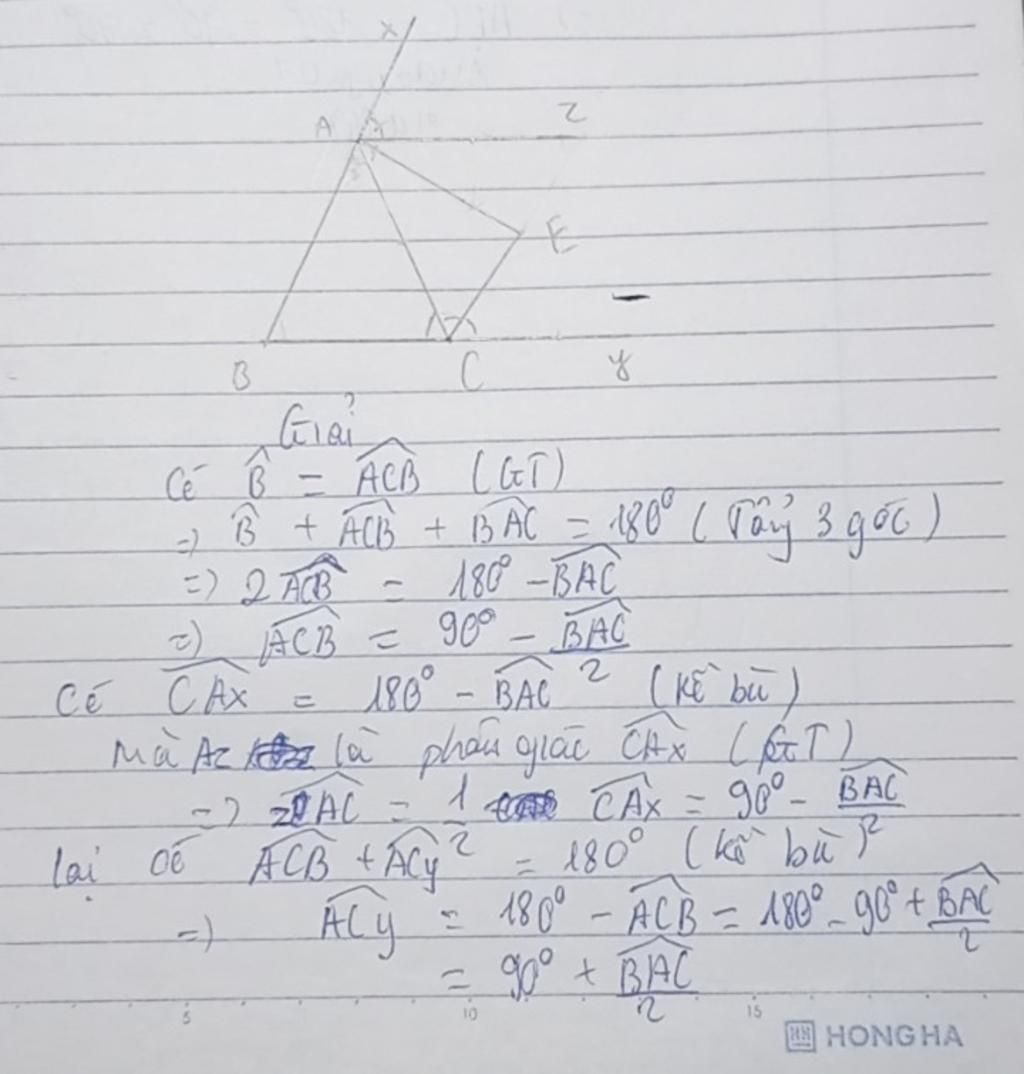 x
A
z
E
B
C
y
Giải
Có B̂ = \widehat{ACB} (GT)
=) B̂ + \widehat{ACB} + \widehat{BAC} = 180° (Tổng 3 góc)
=) 2\widehat{ACB} = 180° - \widehat{BAC}
=) \widehat{ACB} = 90° - \frac{\widehat{BAC}}{2}
Có \widehat{CAx} = 180° - \widehat{BAC} (kề bù)
Mà Az là phân giác \widehat{CAx} (GT)
=) \widehat{zAC} = \frac{1}{2} \widehat{CAx} = 90° - \frac{\widehat{BAC}}{2}
Lại có \widehat{ACB} + \widehat{ACy} = 180° (kề bù)
=) \widehat{ACy} = 180° - \widehat{ACB} = 180° - 90° + \frac{\widehat{BAC}}{2}
= 90° + \frac{\widehat{BAC}}{2}
5 10 15
HONG HA